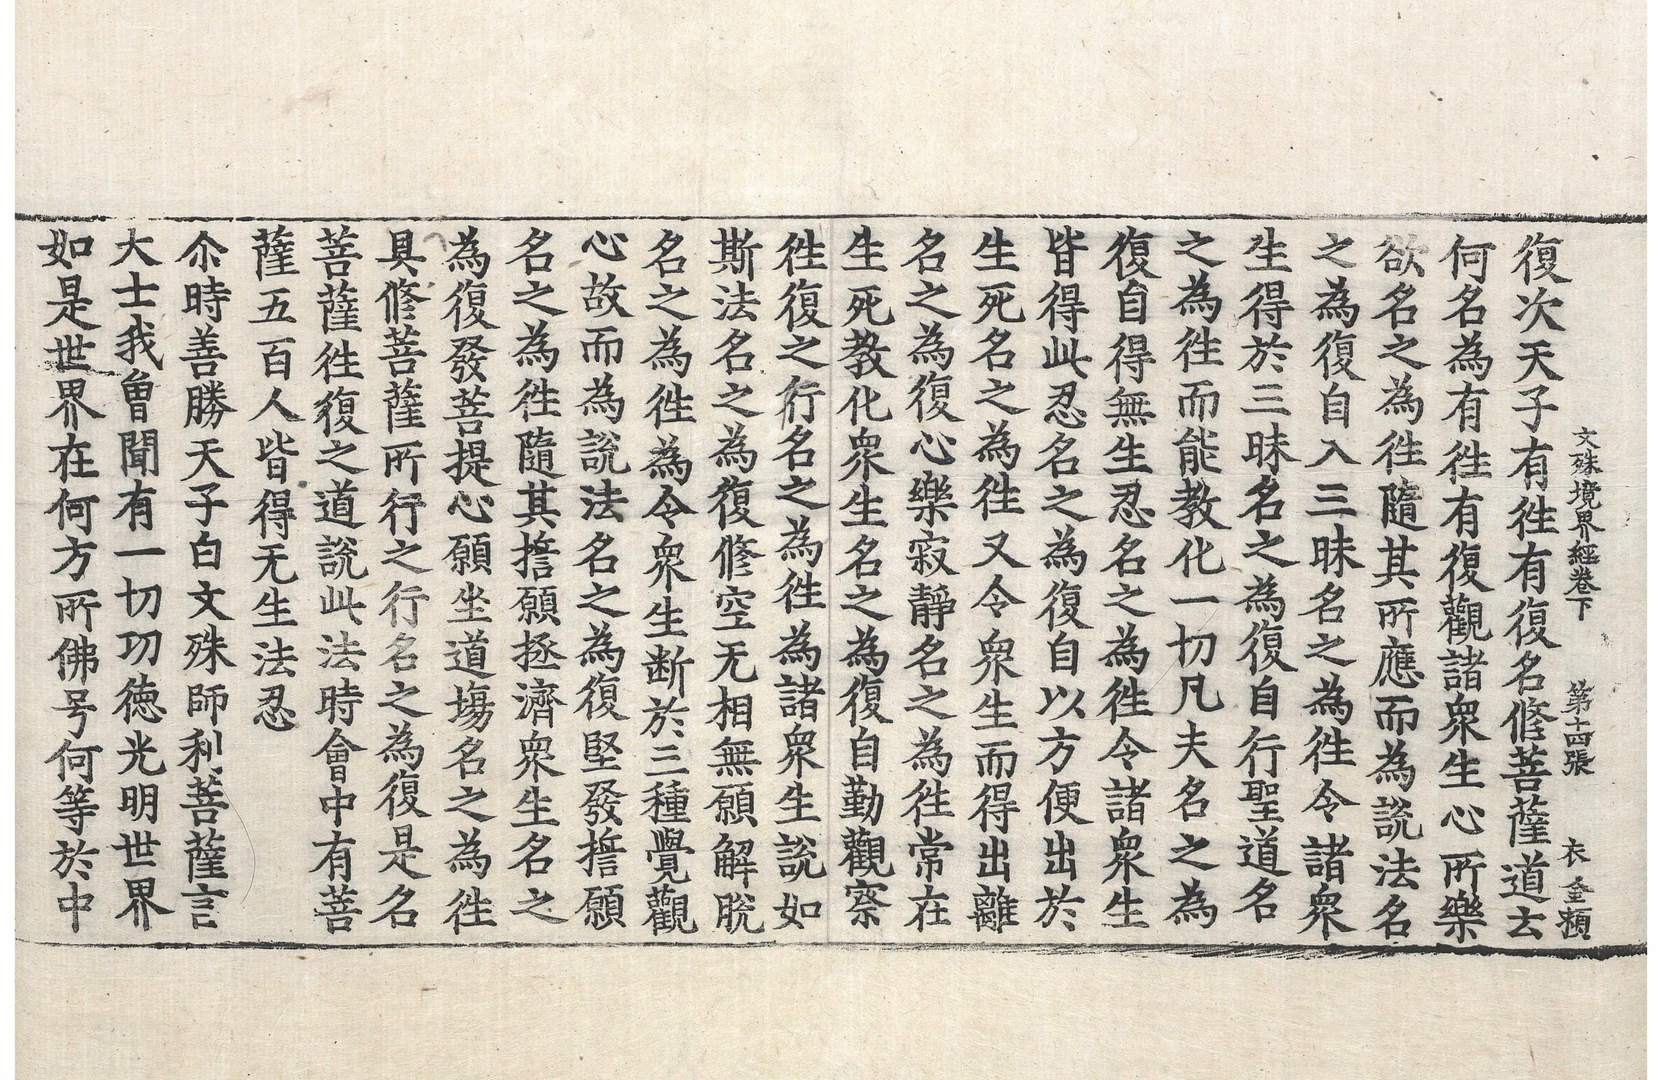 文殊境界經卷下 第十四張 衣 金頼
復次天子有徃有復名修菩薩道云
何名為有徃有復觀諸衆生心所樂
欲名之為徃隨其所應而為説法名
之為復自入三昧名之為徃令諸衆
生得於三昧名之為復自行聖道名
之為徃而能教化一切凡夫名之為
復自得無生忍名之為徃令諸衆生
皆得此忍名之為復自以方便出於
生死名之為徃又令衆生而得出離
名之為復心樂寂靜名之為徃常在
生死教化衆生名之為復自勤觀察
徃復之行名之為徃為諸衆生説如
斯法名之為復修空无相無願解脫
名之為徃為令衆生断於三種覺觀
心故而為説法名之為復堅發誓願
名之為徃隨其誓願拯濟衆生名之
為復發菩提心願坐道場名之為徃
具修菩薩所行之行名之為復是名
菩薩徃復之道説此法時會中有菩
薩五百人皆得无生法忍
尒時善勝天子白文殊師利菩薩言
大士我曾聞有一切功德光明世界
如是世界在何方所佛号何等於中